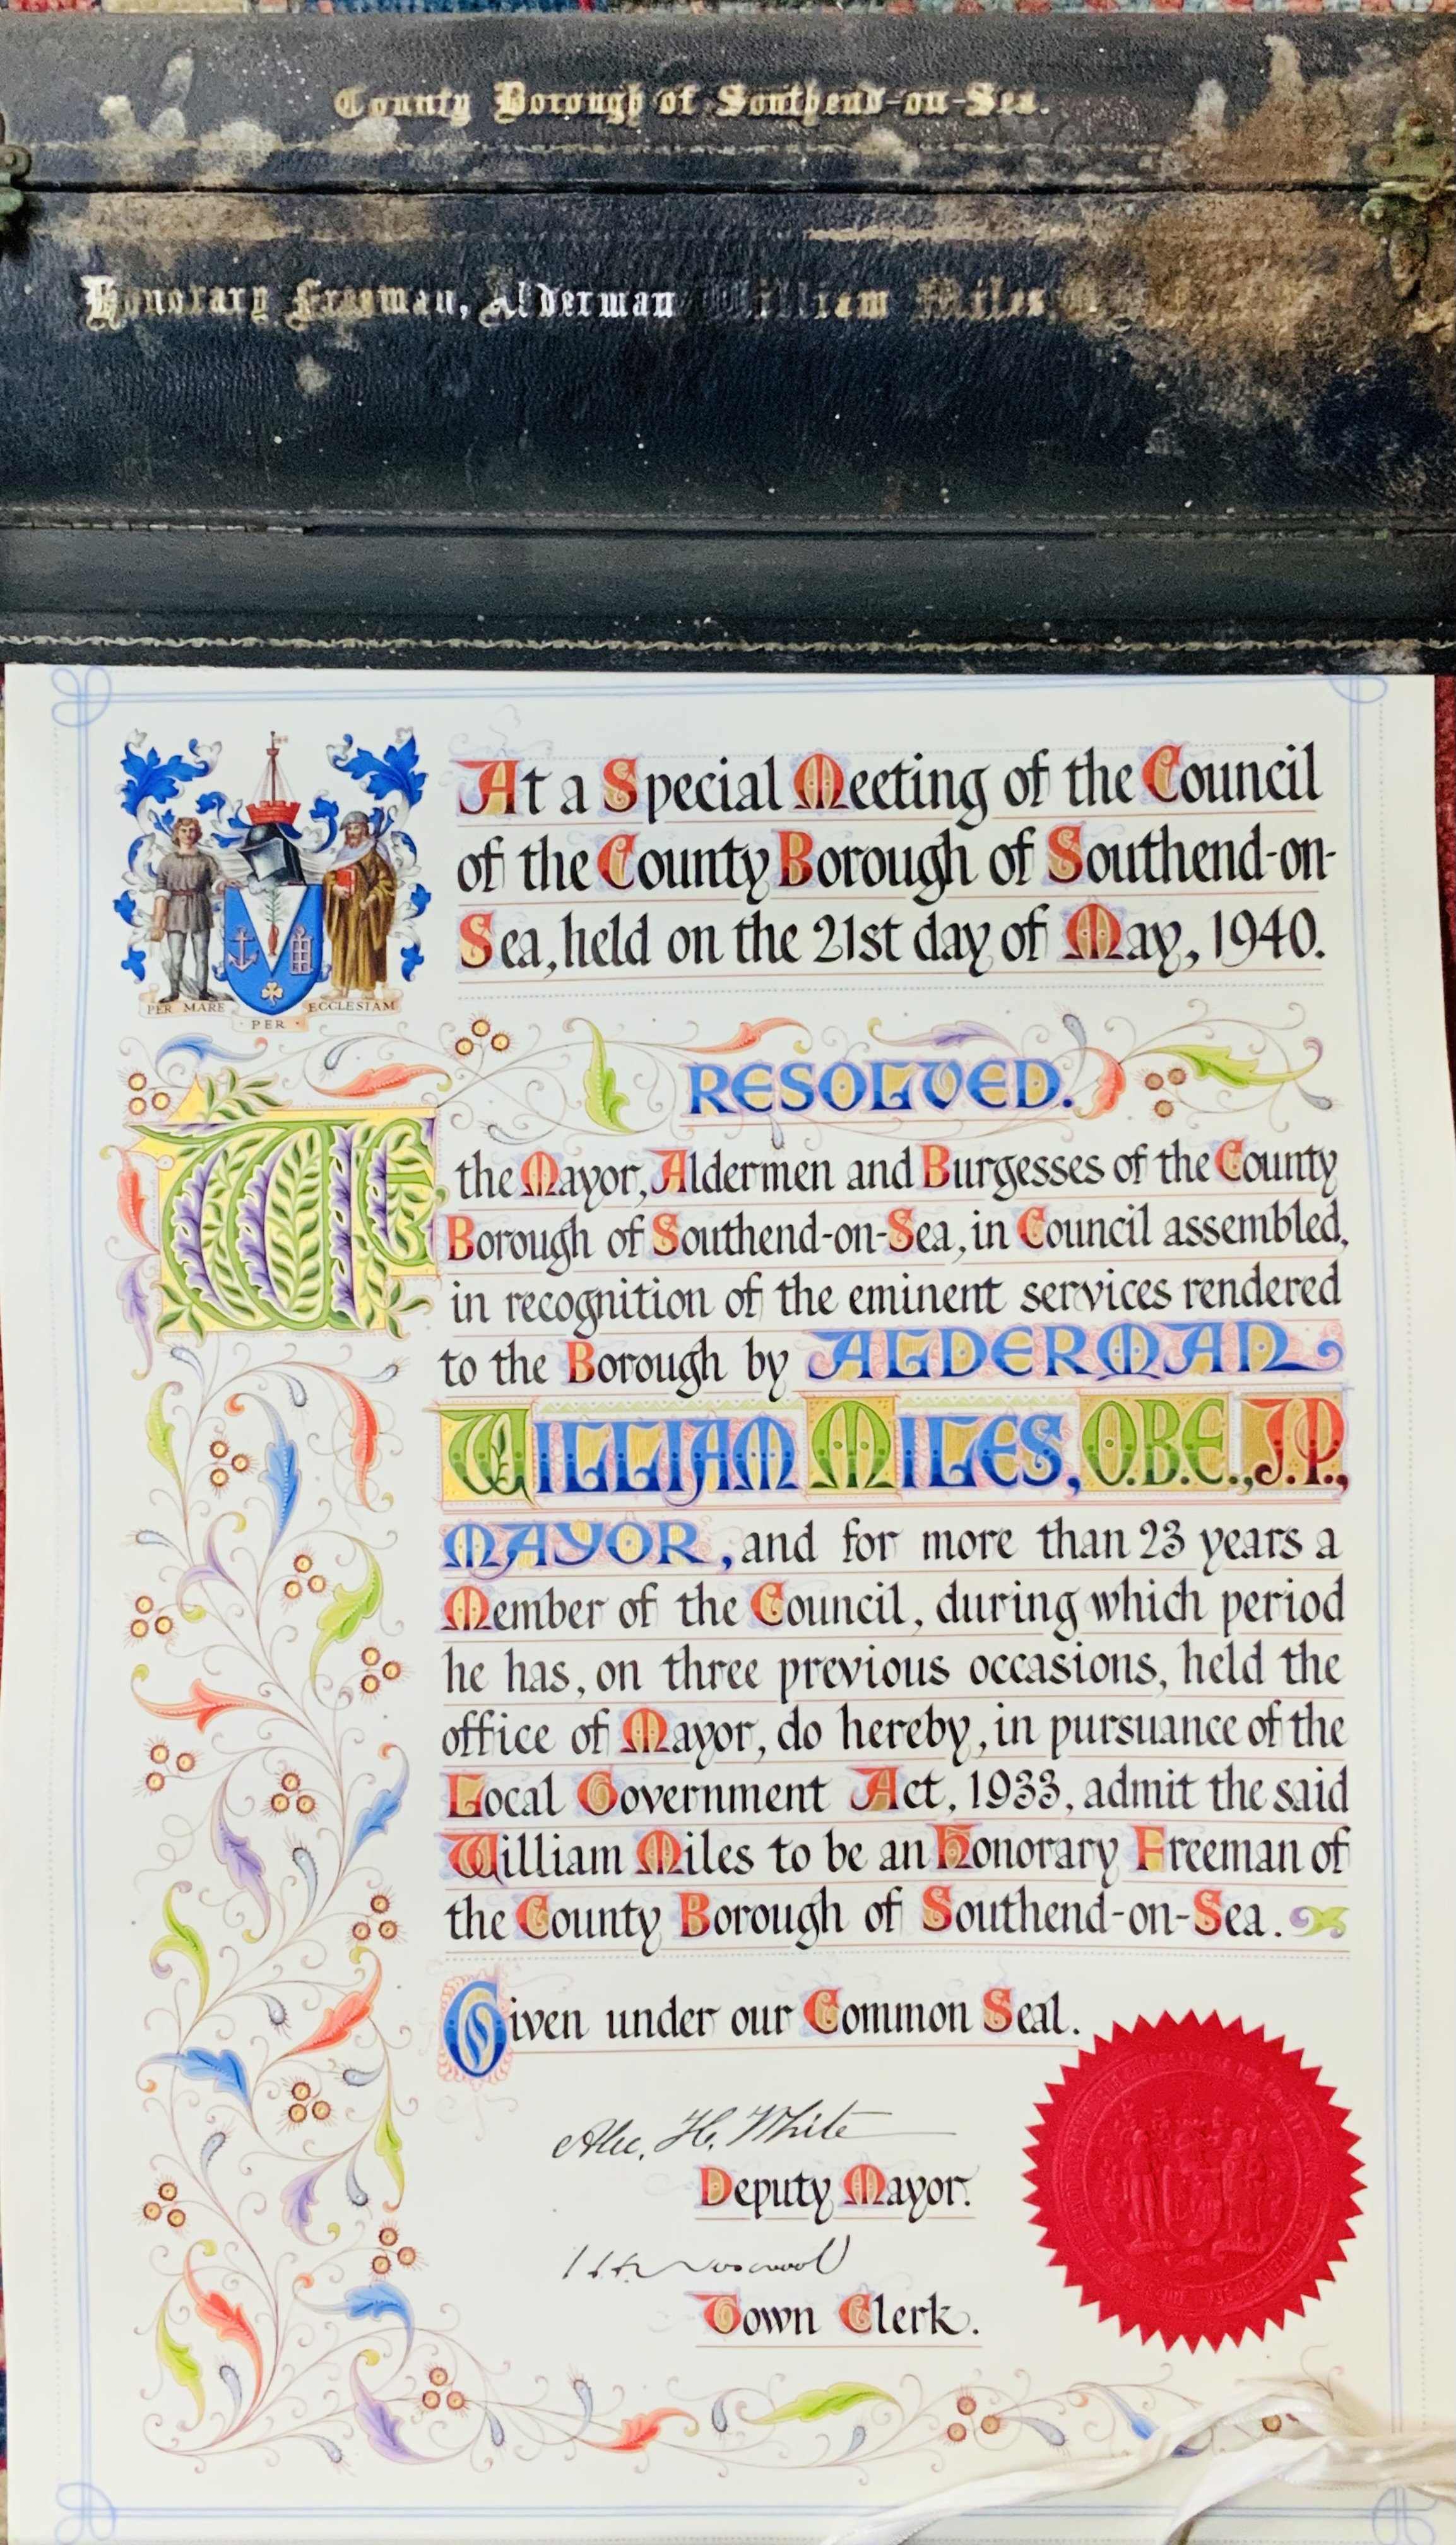 County Borough of Southend-on-Sea.
Honorary Freeman, Alderman William Miles
At a Special Meeting of the Council
of the County Borough of Southend-on-
Sea, held on the 21st day of May, 1940.
PER MARE
PER
ECCLESIAM
RESOLVED.
WE,
the Mayor, Aldermen and Burgesses of the County
Borough of Southend-on-Sea, in Council assembled,
in recognition of the eminent services rendered
to the Borough by ALDERMAN
WILLIAM MILES, O.B.E., J.P.,
MAYOR, and for more than 23 years a
Member of the Council, during which period
he has, on three previous occasions, held the
office of Mayor, do hereby, in pursuance of the
Local Government Act, 1933, admit the said
William Miles to be an Honorary Freeman of
the County Borough of Southend-on-Sea.
Given under our Common Seal.
Alec. H. White
Deputy Mayor.
Town Clerk.